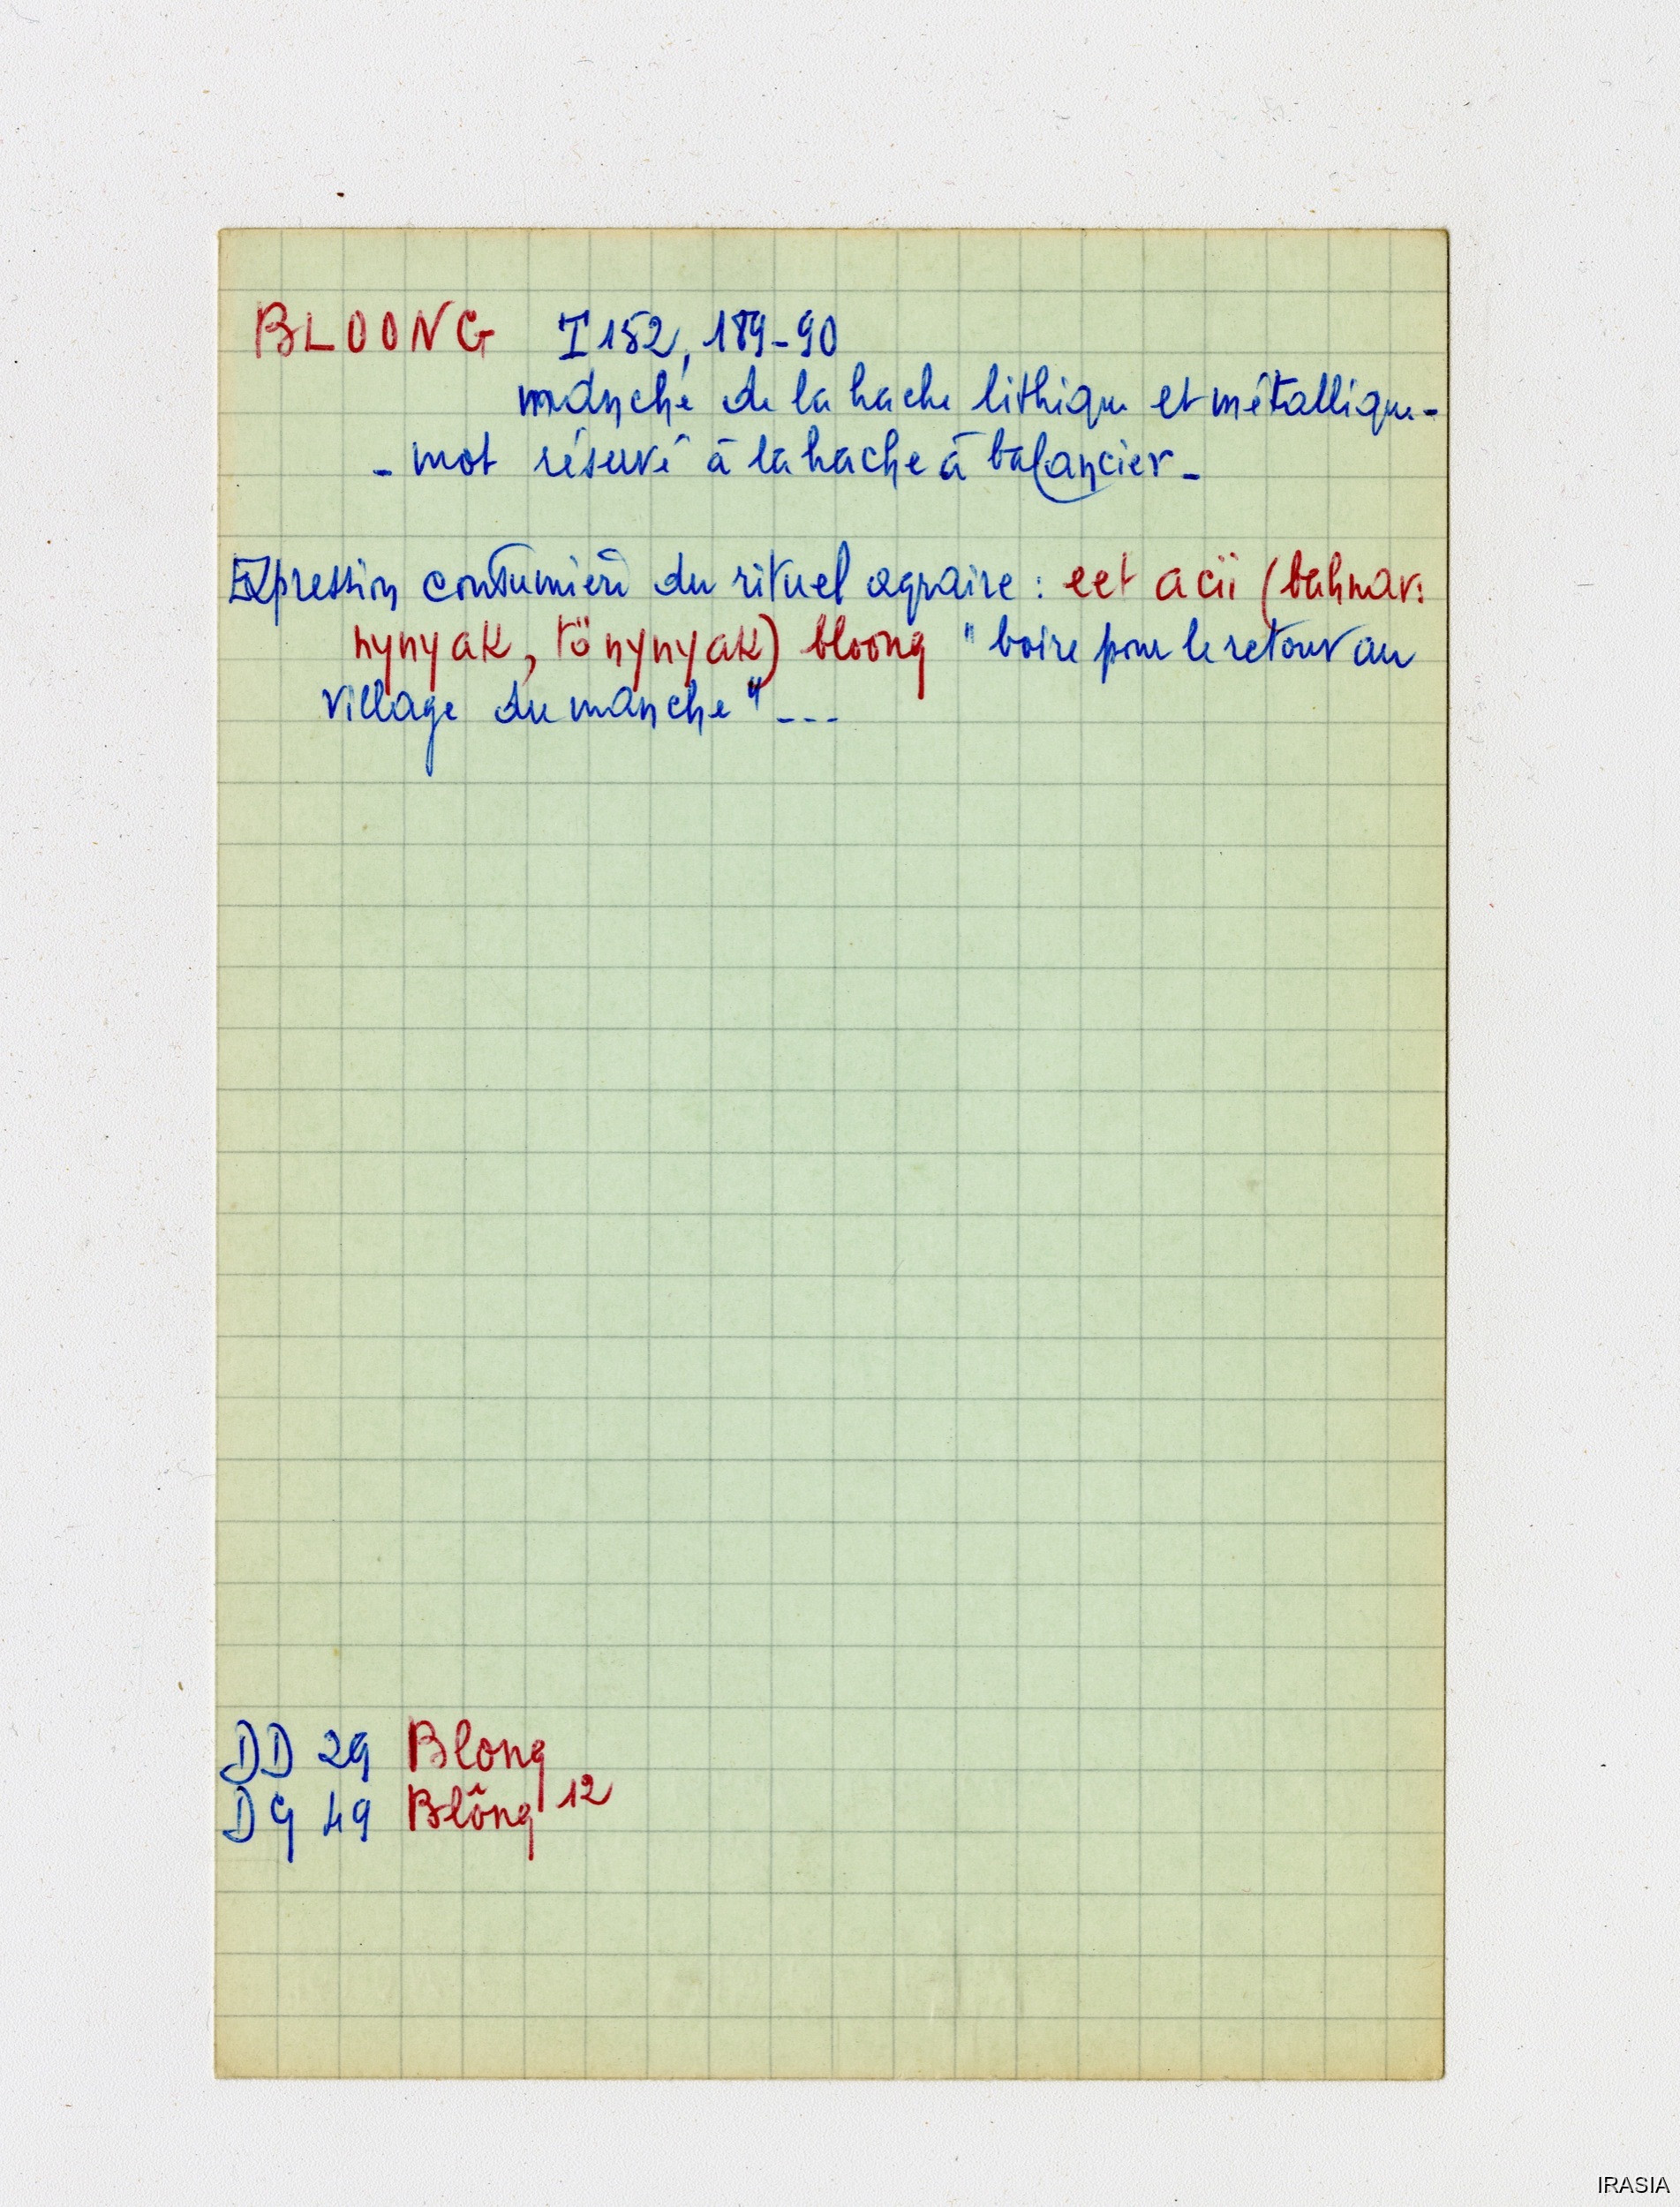 BLOONG I 152, 189-90
manche de la hache lithique et métallique-
- mot réservé à la hache à balancier -
Expression coutumière du rituel agraire : eet acii (bahnar:
nynyak, tönynyak) bloong "boire pour le retour au
village du manche" ---
DD 29 Blong
DG 49 Blông 12
IRASIA